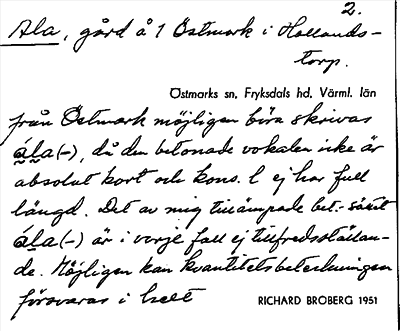 2.
Ala, gård å 1 Östmark i Hollands-
torp.
Östmarks sn, Fryksdals hd, Värml. län
från Östmark möjligen böra skrivas
ála(-), då den betonade vokalen icke är
absolut kort och kons. l ej har full
längd. Det av mig tillämpade bet.-sätt
ála(-) är i varje fall ej tillfredsställan-
de. Möjligen kan kvantitetsbeteckningen
försvaras i helt
RICHARD BROBERG 1951